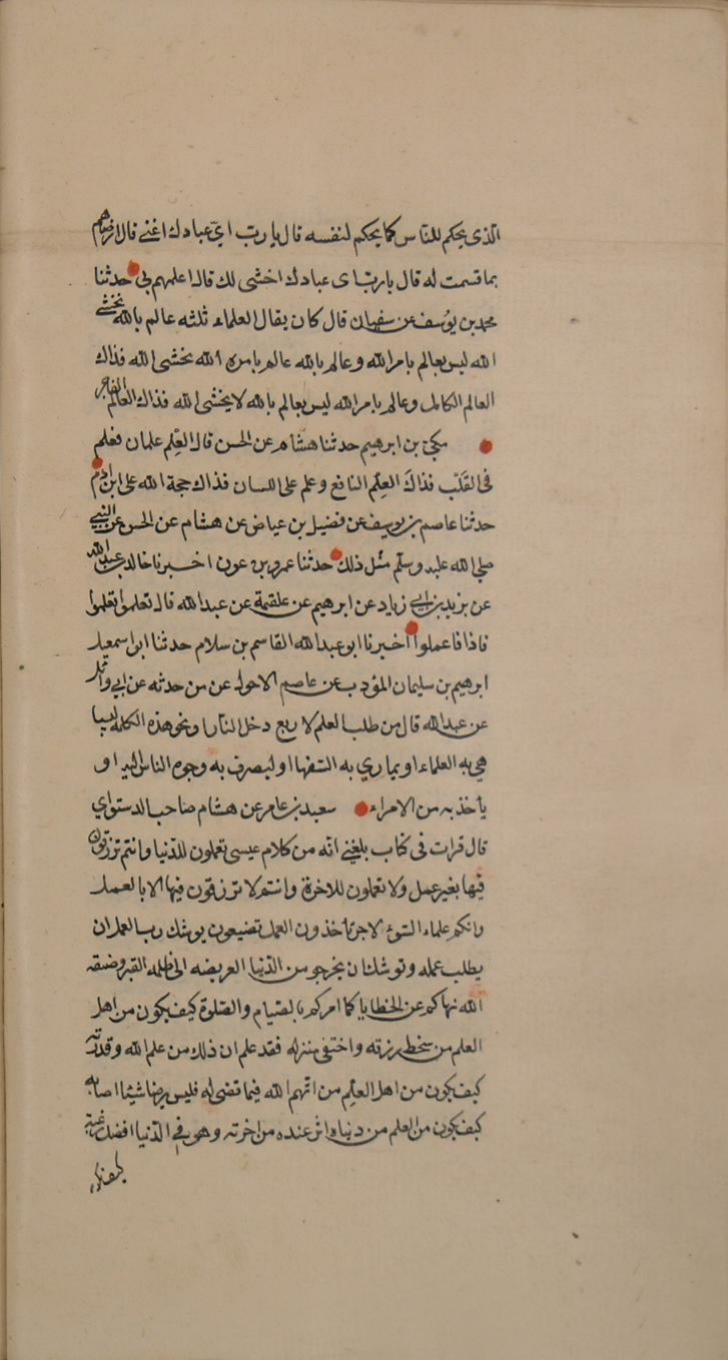 الذى يحكم للناس كما يحكم لنفسه قال يا رب اى عبادك اغنى قال ارضاهم
بما قسمت له قال يا رب اى عبادك اخشى لك قال اعلمهم بى حدثنا
محمد بن يوسف عن سفيان قال كان يقال العلماء ثلثه عالم بالله يخشى
الله ليس بعالم بامر الله وعالم بالله عالم بامره الله يخشى الله فذاك
العالم الكامل وعالم بامر الله ليس بعالم بالله لا يخشى الله فذاك العالم الفاجر
مكى بن ابرهيم حدثنا هشام عن الحسن قال العلم علمان فعلم
فى القلب فذاك العلم النافع وعلم على اللسان فذاك حجة الله على ابن ادم
حدثنا عاصم بن يوسف عن فضيل بن عياض عن هشام عن الحسن عن النبى
صلى الله عليه وسلم مثل ذلك حدثنا عمرو بن عون اخبرنا خالد بن عبد الله
عن يزيد بن ابى زياد عن ابرهيم عن علقمة عن عبد الله قال تعلموا تعلموا
فاذا فاعملوا اخبرنا ابو عبد الله القاسم بن سلام حدثنا ابو اسمعيل
ابرهيم بن سليمان المؤدب عن عاصم الاحول عن من حدثه عن ابى وائل
عن عبد الله قال من طلب العلم لاربع دخل النار او نحو هذه الكلمه ليبا
هى به العلماء او يمارى به السفها او ليصرف به وجوه الناس اليه او
ياخذ به من الامراء سعيد بن عامر عن هشام صاحب الدستواى
قال قرات فى كتاب بلغنى انه من كلام عيسى تعملون للدنيا وانتم ترزقون
فيها بغير عمل ولا تعملون للاخرة وانتم لا ترزقون فيها الا بالعمل
وانكم علماء السوء الاجر تاخذون العمل تضيعون يوشك رب العمل ان
يطلب عمله وتوشك ان يخرجو من الدنيا العريضه الى ظلمه القبر وضيقه
الله نهاكم عن الخطايا كما امركم بالصيام والصلوة كيف يكون من اهل
العلم من سخط رزقه واحتقر منزله فقد علم ان ذلك من علم الله وقدرته
كيف يكون من اهل العلم من اتهم الله فيما قضى له فليس يرضا شيئا اصابه
كيف يكون من العلم من دنياه اثر عنده من اخرته وهو فى الدنيا افضل رغبة